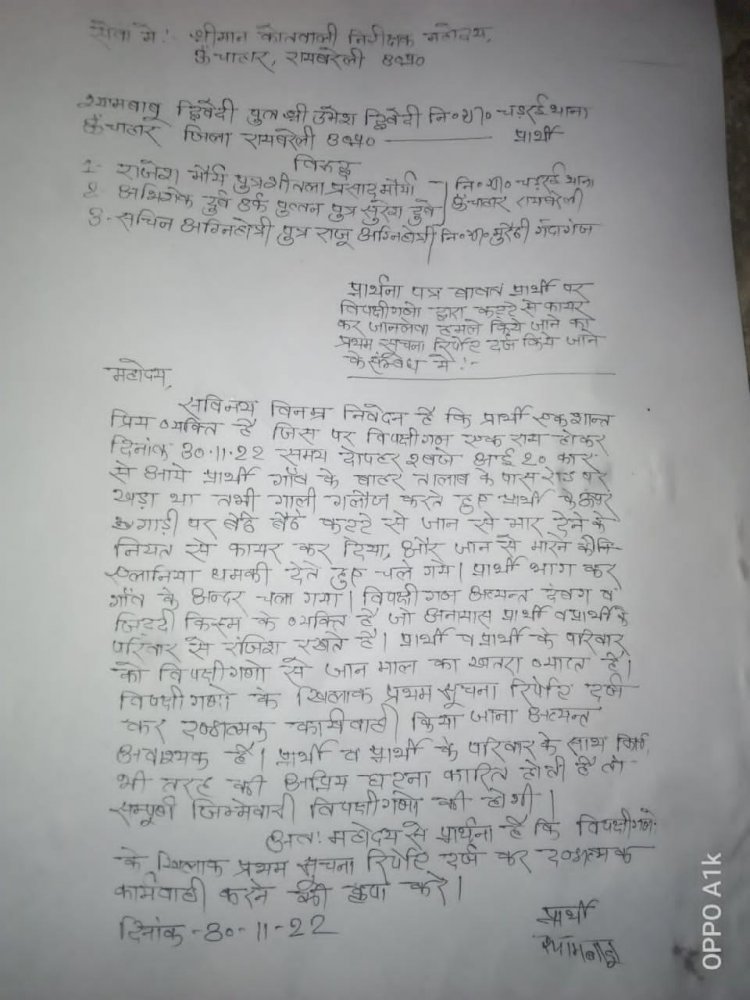 सेवा में! श्रीमान कोतवाली निरीक्षक महोदय,
ऊँचाहार, रायबरेली उ०प्र०
श्यामबाबू द्विवेदी पुत्र श्री उमेश द्विवेदी नि०ग्रा० चड़रई थाना
ऊँचाहार जिला रायबरेली उ०प्र० ———— प्रार्थी
विरुद्ध
1- राजेश मौर्य पुत्र शीतला प्रसाद मौर्या
2 अभिषेक दुबे उर्फ पुत्तन पुत्र सुरेश दुबे
नि०ग्रा० चड़रई थाना
ऊँचाहार रायबरेली
3- सचिन अग्निहोत्री पुत्र राजू अग्निहोत्री नि०ग्रा० गदागंज
प्रार्थना पत्र बावत प्रार्थी पर
विपक्षीगणो द्वारा कट्टे से फायर
कर जानलेवा हमले किये जाने का
प्रथम सूचना रिपोर्ट दर्ज किये जाने
के संबंध में!-
महोदय,
सविनय विनम्र निवेदन है कि प्रार्थी एक शान्त
प्रिय व्यक्ति है जिस पर विपक्षीगण एक राय होकर
दिनांक 30.11.22 समय दोपहर 2 बजे आई 20 कार
से आये प्रार्थी गाँव के बाहर तालाब के पास रोड पर
खड़ा था तभी गाली गलौज करते हुए प्रार्थी के ऊपर
गाड़ी पर बैठे बैठे कट्टे से जान से मार देने के
नियत से फायर कर दिया, और जान से मारने की
एलानिया धमकी देते हुए चले गये। प्रार्थी भाग कर
गाँव के अन्दर चला गया। विपक्षीगण अत्यन्त दबंग व
जिद्दी किस्म के व्यक्ति है जो अनायास प्रार्थी व प्रार्थी के
परिवार से रंजिश रखते है। प्रार्थी व प्रार्थी के परिवार
को विपक्षीगणो से जान माल का खतरा व्याप्त है।
विपक्षीगणो के खिलाफ प्रथम सूचना रिपोर्ट दर्ज
कर दण्डात्मक कार्यवाही किया जाना अत्यन्त
आवश्यक है। प्रार्थी व प्रार्थी के परिवार के साथ किसी
भी तरह की अप्रिय घटना कारित होती है तो
सम्पूर्ण जिम्मेवारी विपक्षीगणो की होगी।
अतः महोदय से प्रार्थना है कि विपक्षीगणो
के खिलाफ प्रथम सूचना रिपोर्ट दर्ज कर दण्डात्मक
कार्यवाही करने की कृपा करे।
दिनांक -30-11-22
प्रार्थी
श्यामबाबू
OPPO A1k